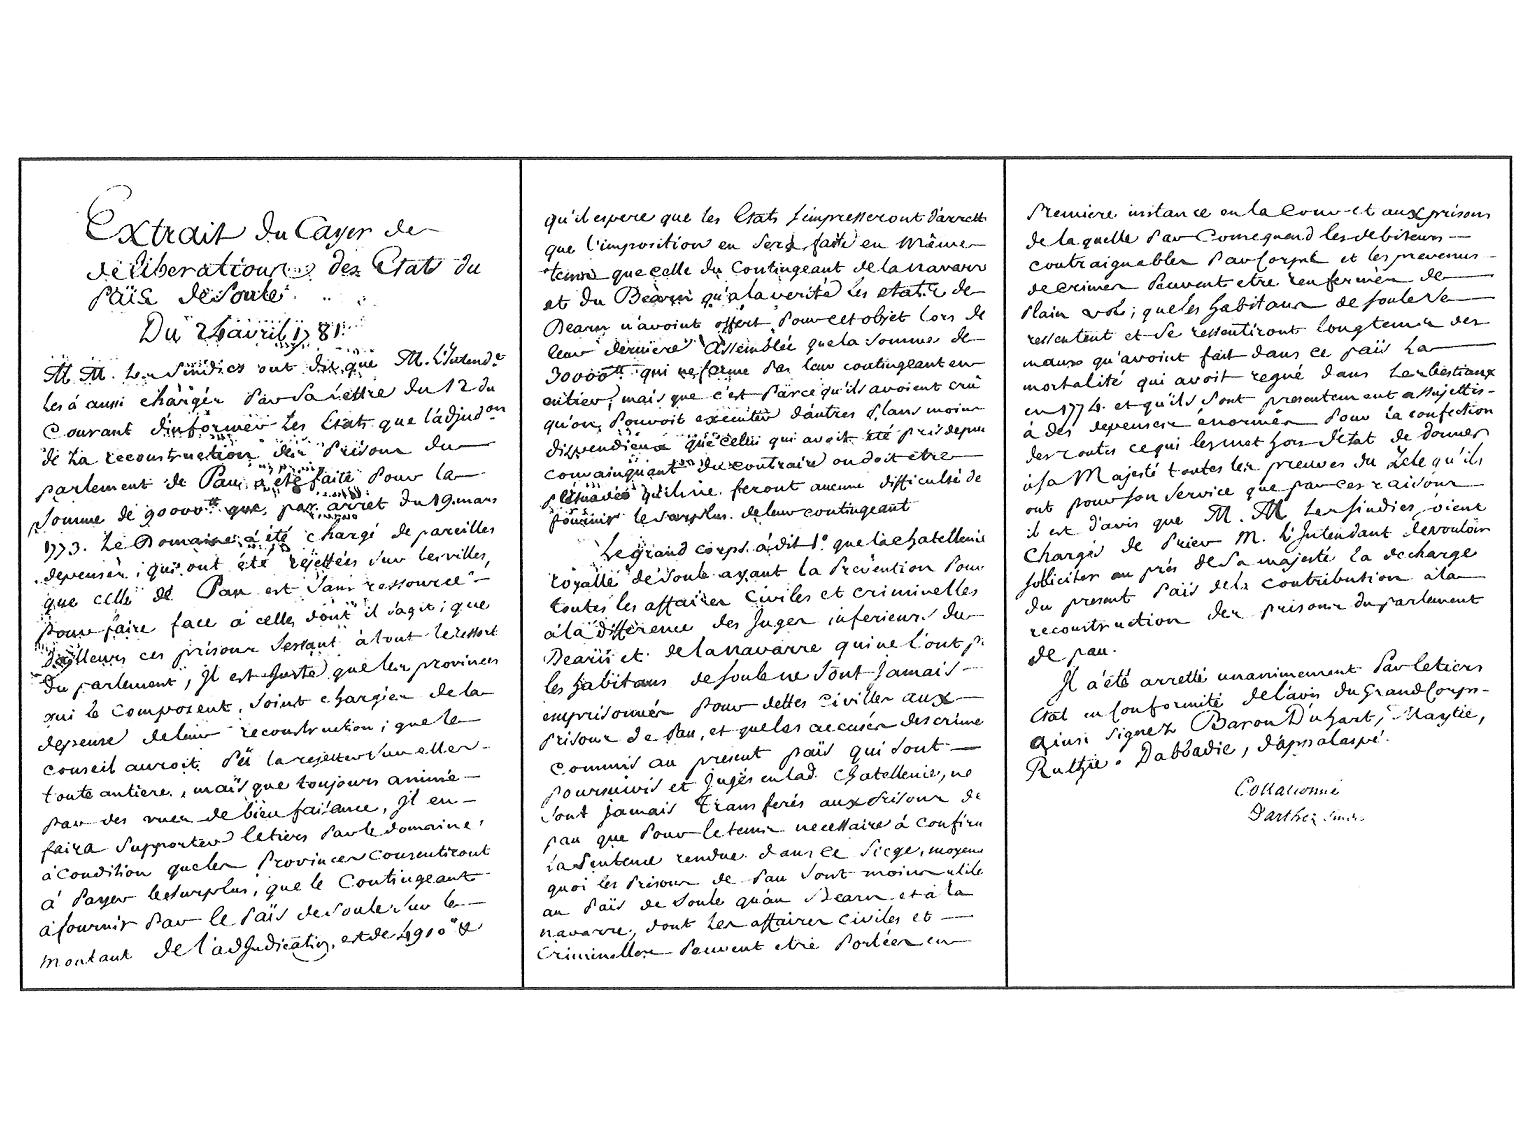 Extrait du Cayer de
déliberations des Etats du
païs de Soule
Du 24 avril 1781
M. M. Les Sindics ont dit que M. L'Intend.t
les á aussi chargés Par Sa lettre du 12 du
Courant d'informer Les Etats que l'adjud.on
de La reconstruction des Prisons du
parlement de Pau a été faite Pour la
Somme de 90000tt que, par arret du 19. mars
1773. Le Domaine á été chargé de pareilles
depenses; qui ont été rejettées Sur les villes,
que celle de Pau est Sans ressource
pour faire face á celles dont il s'agit; que
d'ailleurs ces prisons Servant á tout le ressort
du parlement, Il est Juste que les provinces
qui le composent, soint chargées de la
depense de leur reconstruction; que le
conseil auroit Pû la rejetter Sur elles
toute antiere, mais que toujours animé
par des vues de bienfaisance, Il en
faira Supporter le tiers Par le domaine,
á condition que les Provinces Consentiront
á Payer le Surplus; que le Contingeant
á fournir Par le Païs de Soule Sur le
montant de l'adjudication, est de 4910tt
qu'il espere que les Etats S'impresseront d'arrett
que l'imposition en Sera faite en Même
tems que celle du Contingeant de la navarre
et du Bearn qu'á la verité les etats de
Bearn n'avoint offert Pour cet objet Lors de
leur derniere Assemblée que la Somme de
30000tt qui ne forme Pas leur contingeant en
entier, mais que c'est Parce qu'ils avoient crû
qu'on Pouvoit executer d'autres Plans moins
dispendieux que celui qui avoit été pris depuis
convainquant du contraire on doit etre
persuadés qu'ils ne feront aucune difficulté de
fournir le Surplus de leur contingeant
Le grand corps á dit 1.o que la Chatellenie
royalle de Soule ayant la Prévention Pour
toutes les affaires Civiles et criminelles
á la difference des Juges inferieurs du
Bearn et de la navarre qui ne l'ont p.
les habitans de Soule ne Sont Jamais
emprisonnés pour dettes Civilles aux
Prisons de Pau, et que les accusés des crime
Commis au present païs qui sont
poursuivis et Jugés en lad. Chatellenie, ne
Sont Jamais transferés aux Prisons de
pau que Pour le tems necessaire á confirm
La Sentence rendue dans ce Siege, moyen
quoi les Prisons de Pau Sont moins utile
au Païs de Soule qu'au Bearn et á la
navarre, dont Les affaires Civiles et
Criminelles Peuvent etre Portées en
Premiere instance en la Cour et aux prisons
de la quelle Par Consequend les debiteurs
contraignables Par Corps et les prevenus
de crimes Peuvent etre renfermés de
Plain vol; que les habitans de Soule Se
ressentent et Se ressentiront longtems des
maux qu'avoint fait dans ce païs La
mortalité qui avoit regné dans Les bestiaux
en 1774. et qu'ils Sont presentement assujettis
á des depenses énormes Pour la confection
des routes ce qui les met hors d'etat de donner
á Sa Majesté toutes les preuves du Zele qu'ils
ont pour Son Service que par ces raisons
il est d'avis que M. M. Les Sindics soient
Chargés de Prier M. L'Intendant de vouloir
solliciter au prés de Sa majesté la decharge
du present Païs de la contribution á la
reconstruction des prisons du parlement
de pau.
Il á été arretté unanimement Par le tiers
etat en Conformité de l'avis du Grand Corps
Ainsi Signez Baron D'uhart, Maytie,
Ruthie. Dabbadie, d'apsalaspé.
Collationné
Darthez